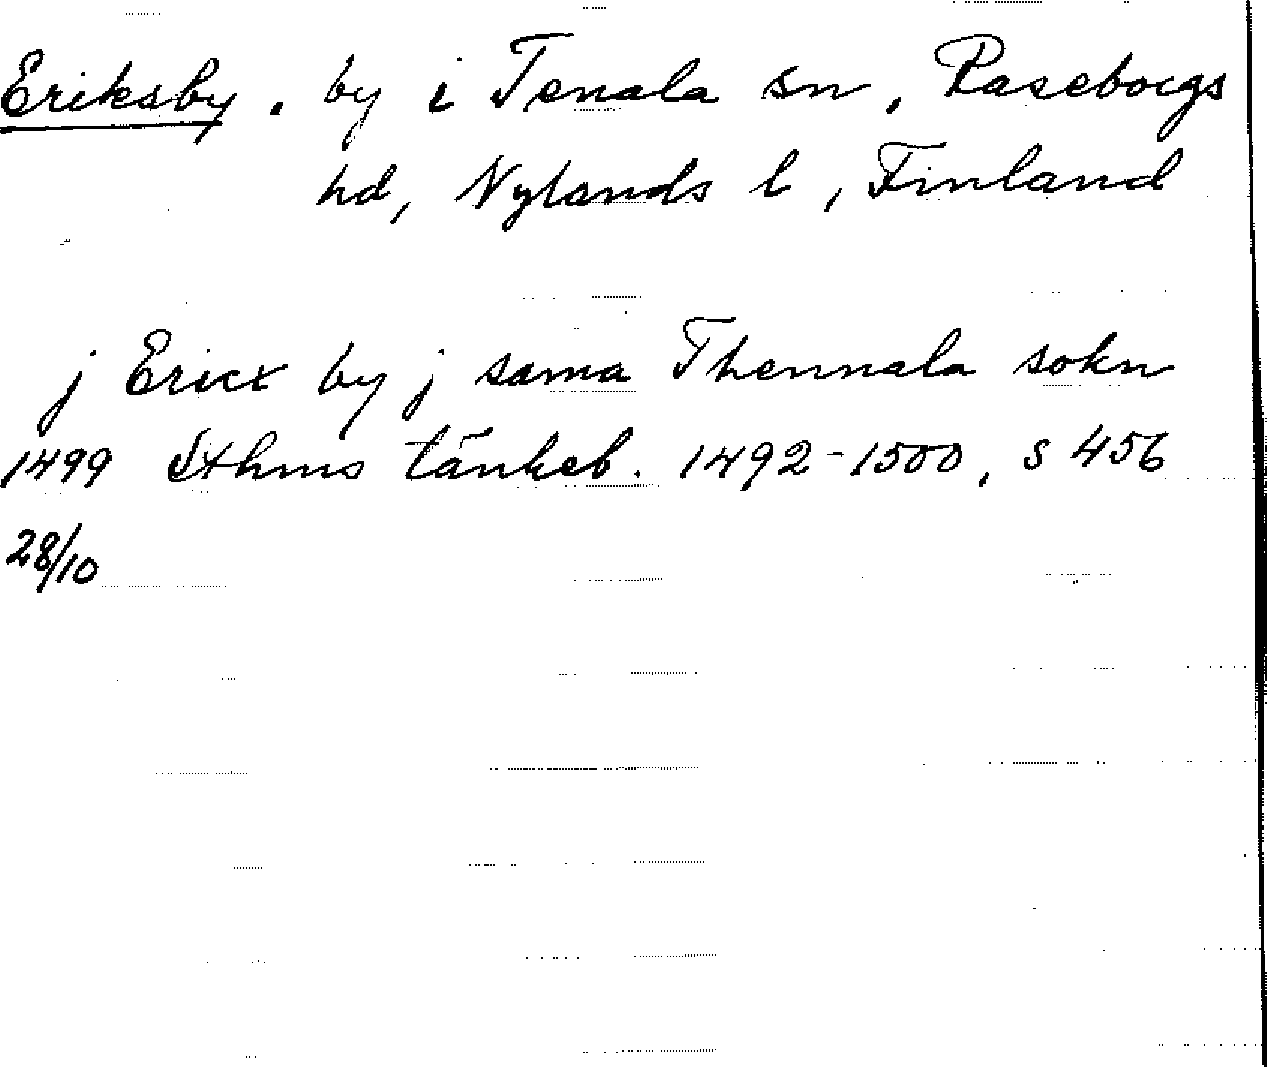 Eriksby. by i Tenala sn, Raseborgs
hd, Nylands l, Finland
j Ericx by j sama Thennala sokn
1499 Sthms tänkeb. 1492-1500, s 456
28/10